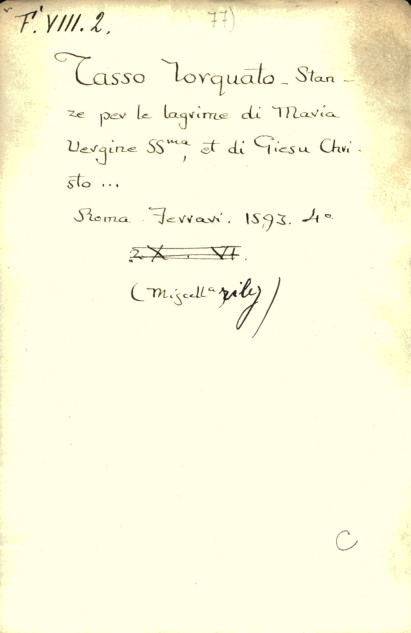 F. VIII. 2. 77)
Tasso Torquato - Stan-
ze per le lagrime di Maria
Vergine SSma, et di Giesu Chri-
sto ...
Roma Ferrari. 1593. 4o
2 X . VI.
(Miscella
C